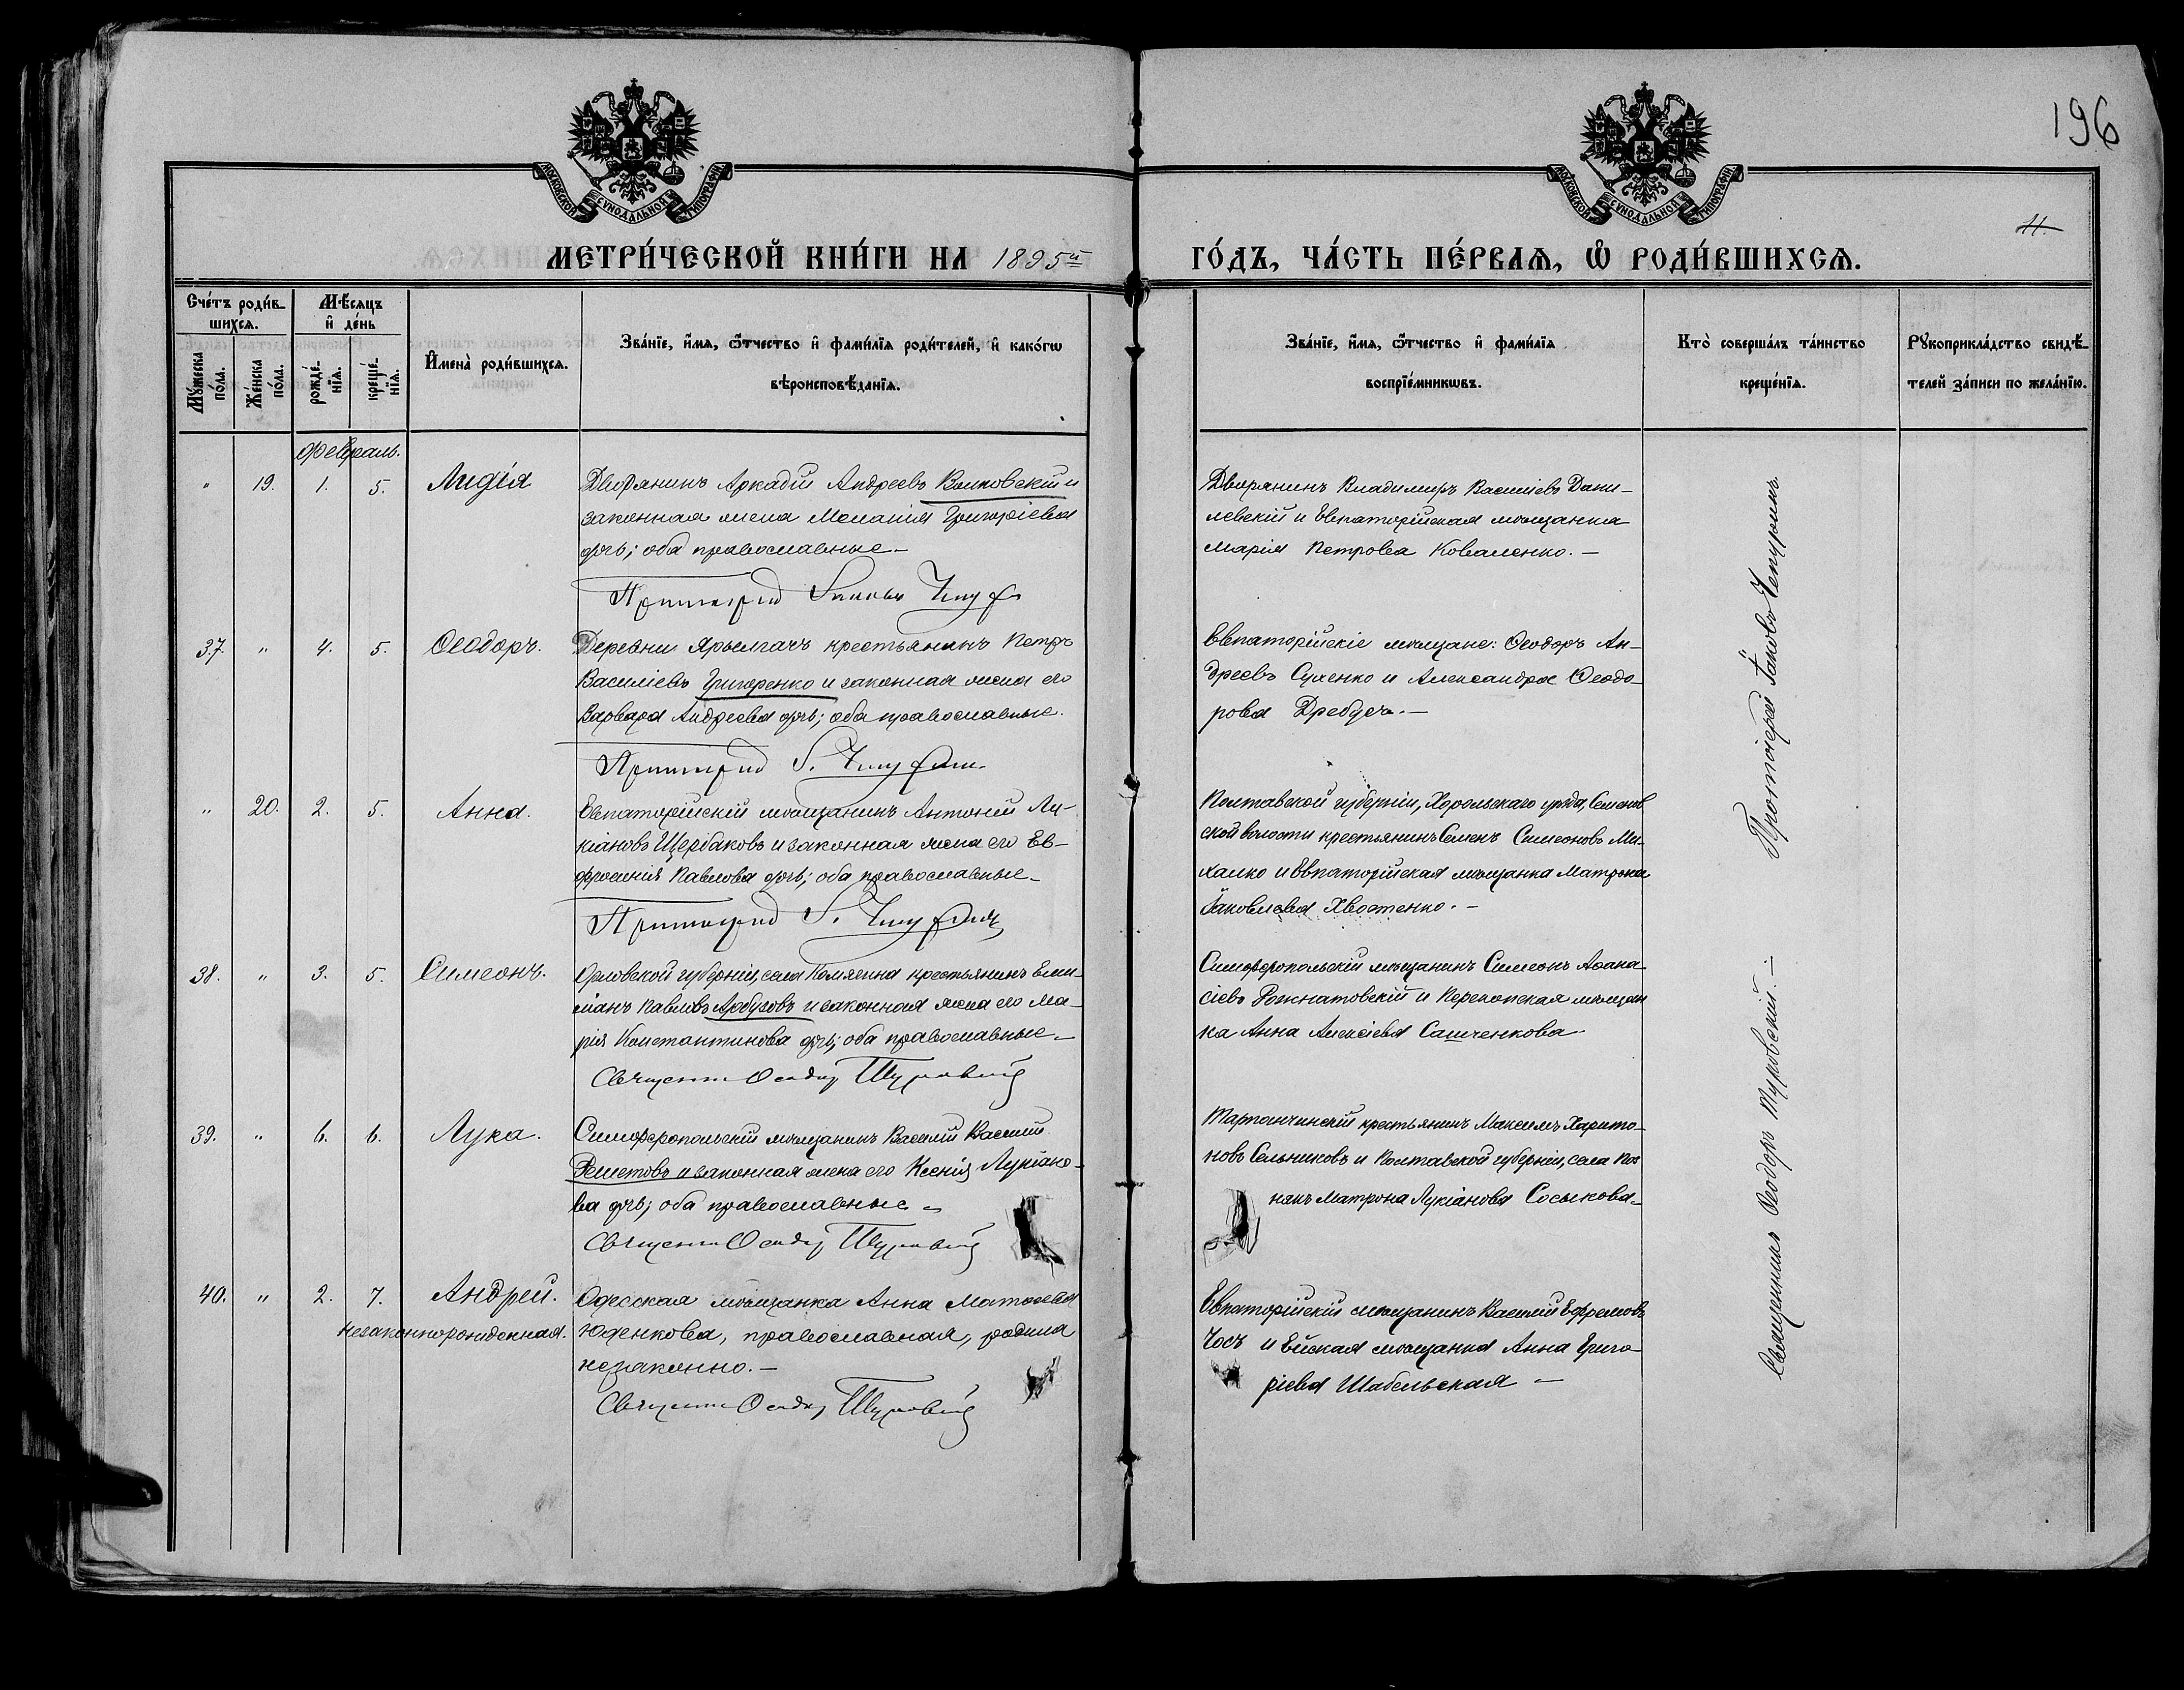 196
МОСКОВСКОЙ СУНОДАЛЬНОЙ ТИПОГРАФІИ
МОСКОВСКОЙ СУНОДАЛЬНОЙ ТИПОГРАФІИ
11.
МЕТРИ́ЧЕСКОЙ КНИ́ГИ НА 1895й ГО́ДЪ, ЧА́СТЬ ПЕ́РВАѦ, Ѡ҆ РОДИ́ВШИХСѦ.
Сче́тъ роди́в-
шихсѧ.
Мѣ́сѧцъ
и҆ де́нь
Мꙋ́жеска по́ла.
Же́нска по́ла.
рожде́-
нїѧ.
креще́-
нїѧ.
И҆мена̀ роди́вшихсѧ.
Зва́нїе, и҆́мѧ, ѻ҆́тчество и҆ фами́лїѧ роди́телей, и҆ како́гѡ
вѣроисповѣ́данїѧ.
Зва́нїе, и҆́мѧ, ѻ҆́тчество и҆ фами́лїѧ
воспрїе́мникѡвъ.
Кто̀ соверша́лъ та́инство
креще́нїѧ.
Рꙋкоприкла́дство свидѣ́-
телей за́писи по жела́нїю.
Февраль.
" 19. 1. 5. Лидія
Дворянинъ Аркадій Андреевъ Волковскій и
законная жена Меланія Григоріева
дочь; оба православные-
Протоіерей Іаковъ
Дворянинъ Владимиръ Василіевъ Дани-
левскій и Евпаторійская мѣщанка
Марія Петрова Коваленко.-
37. " 4. 5. Ѳеодоръ.
Деревни Ярылгачъ крестьянинъ Петръ
Василіевъ Григоренко и законная жена его
Варвара Андреева дочь; оба православные.
Протоіерей І. Чепуринъ
Евпаторійскіе мѣщане: Ѳеодоръ Ан-
дреевъ Сухенко и Александра Ѳеодо-
рова
" 20. 2. 5. Анна.
Евпаторійскій мѣщанинъ Антоній Лу-
кіановъ Щербаковъ и законная жена его Ев-
фросинія Павлова дочь; оба православные-
Протоіерей І. Чепуринъ
Полтавской губерніи, Хорольскаго уѣзда, Семенов
ской волости крестьянинъ Семенъ Симеоновъ Ми-
халко и Евпаторійская мѣщанка Матрона
Іаковлева Хвостенко.-
38. " 3. 5. Симеонъ.
Орловской губерніи, села крестьянинъ Еми-
ліанъ Павловъ Арбузовъ и законная жена его Ма-
рія Константинова дочь; оба православные-
Священникъ Ѳеодоръ Туровскій
Симферопольскій мѣщанинъ Симеонъ Аѳана-
сіевъ Рожнатовскій и Перекопская мѣщан
ка Анна Алексіева Сашченкова
39. " 6. 6. Лука.
Симферопольскій мѣщанинъ Василій Василій
Решетовъ и законная жена его Ксенія Лукіано-
ва дочь; оба православные-
Священникъ Ѳеодоръ Туровскій
крестьянинъ Максимъ Харито-
новъ Сельниковъ и Полтавской губерніи, села
Матрона Лукіанова Сосыкова-
40. " 2. 7. Андрей.
незаконнорожденная.
Одесская мѣщанка Анна Матѳеева
Юденкова, православная, родила
незаконно.-
Священникъ Ѳеодоръ Туровскій
Евпаторійскій мѣщанинъ Василій Ефремовъ
Чосъ и Ейская мѣщанка Анна Григо-
ріева Шабельская-
Протоіерей Іаковъ Чепуринъ
Священникъ Ѳеодоръ Туровскій.-